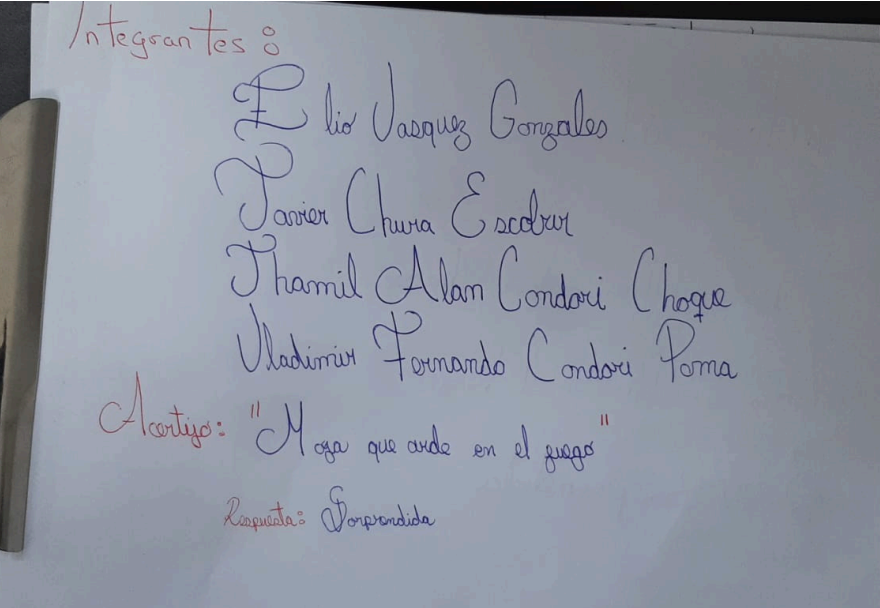 Integrantes:
Elio Vasquez Gonzales
Javier Chura Escobar
Jhamil Alan Condori Choque
Vladimir Fernando Condori Poma
Acertijo: "Moza que arde en el fuego"
Respuesta: Sorprendida